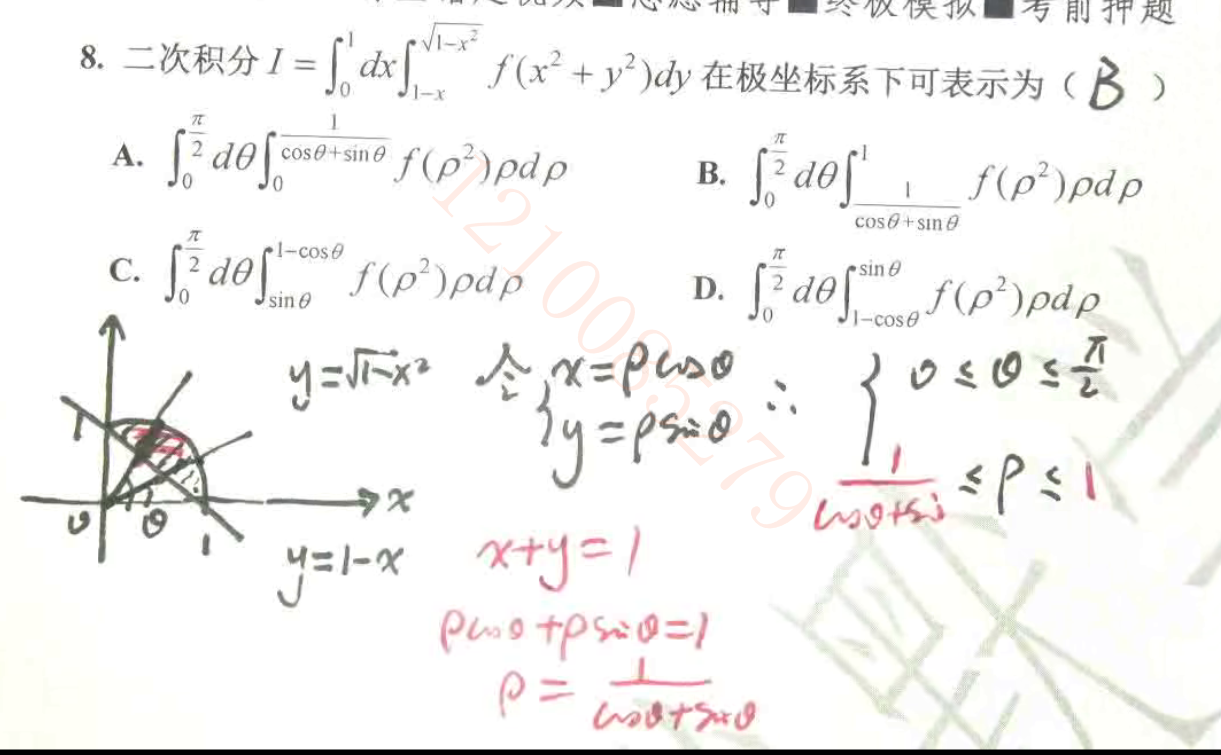 终极模拟■考前押题
8. 二次积分 I = ∫₀¹ dx ∫_{1-x}^{√(1-x²)} f(x² + y²)dy 在极坐标系下可表示为（ B ）
A. ∫₀^{π/2} dθ ∫₀^{1/(cosθ+sinθ)} f(ρ²)ρdρ B. ∫₀^{π/2} dθ ∫_{1/(cosθ+sinθ)}^{1} f(ρ²)ρdρ
C. ∫₀^{π/2} dθ ∫_{sinθ}^{1-cosθ} f(ρ²)ρdρ D. ∫₀^{π/2} dθ ∫_{1-cosθ}^{sinθ} f(ρ²)ρdρ
y=√(1-x²) 令 { x=ρcosθ y=ρsinθ ∴ { 0 ≤ θ ≤ π/2
1/(cosθ+si) ≤ ρ ≤ 1
1
x
0 θ 1
y=1-x
x+y=1
ρcosθ+ρsinθ=1
ρ = 1/(cosθ+sinθ)
1210085279